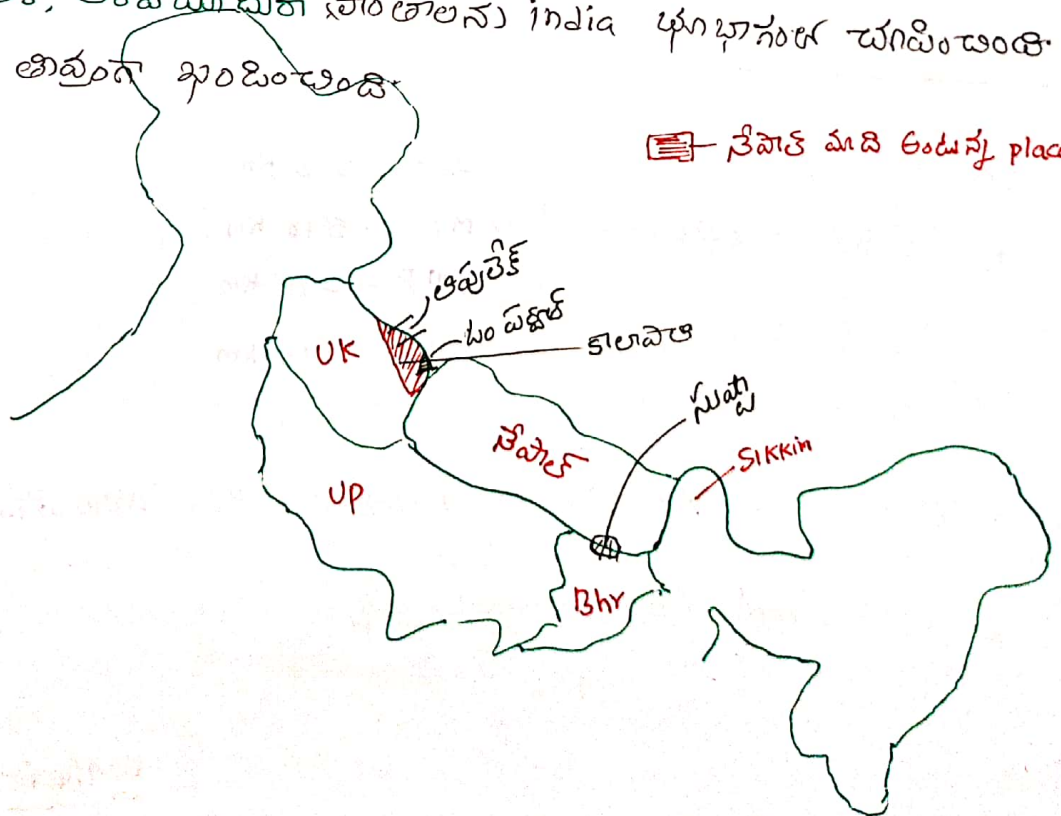 ప్రాంతాలను india భూభాగంలో చూపించింది
తీవ్రంగా ఖండించింది
నేపాల్ మాది అంటున్న plac
లిపులేక్
ఓం పర్వత్
కాలాపాని
UK
సుస్తా
నేపాల్
SIKKIM
UP
Bhr